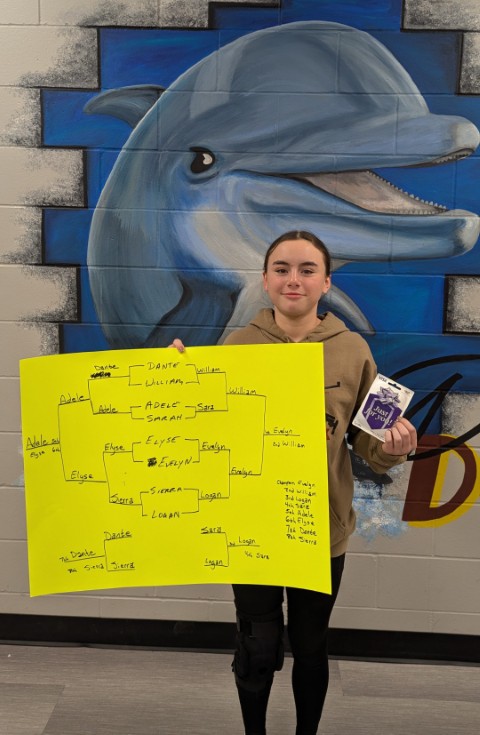 Dante
DANTE
William
WILLIAM
Adele
William
Adele
ADELE
Sara
SARAH
Adele 5th
Elyse 6th
Evelyn
2nd William
Elyse
ELYSE
Evelyn
EVELYN
Elyse
Evelyn
Sierra
SIERRA
Logan
LOGAN
Champion Evelyn
2nd William
3rd Logan
4th Sara
5th Adele
6th Elyse
7th Dante
8th Sierra
Dante
7th Dante
8th Sierra
Sierra
Sara
3rd Logan
4th Sara
Logan
Just
for you!
D